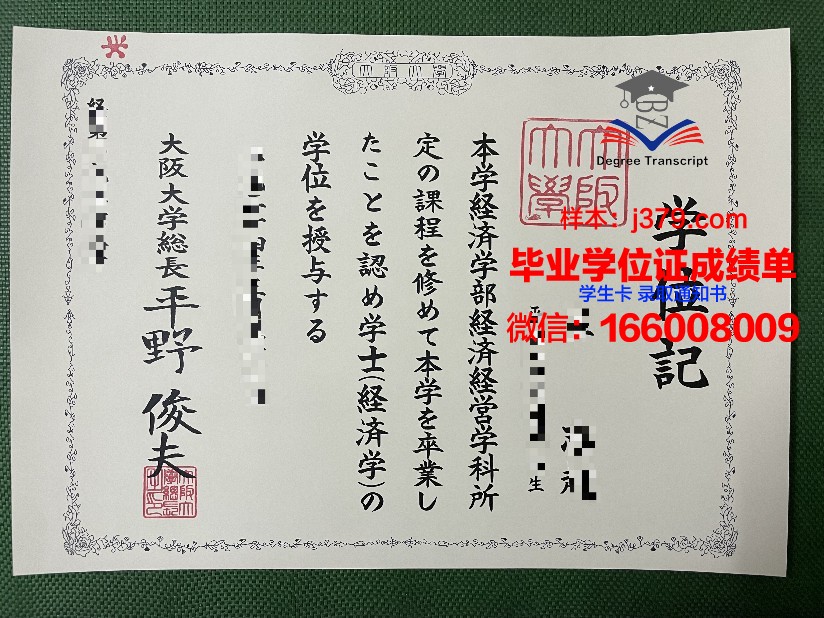 学位記
大阪
大學
生
本学経済学部経済経営学科所
定の課程を修めて本学を卒業し
たことを認め学士(経済学)の
学位を授与する
大阪大学総長 平野 俊夫
Degree Transcript
样本：j379.com
毕业学位证成绩单
学生卡 录取通知书
微信：166008009